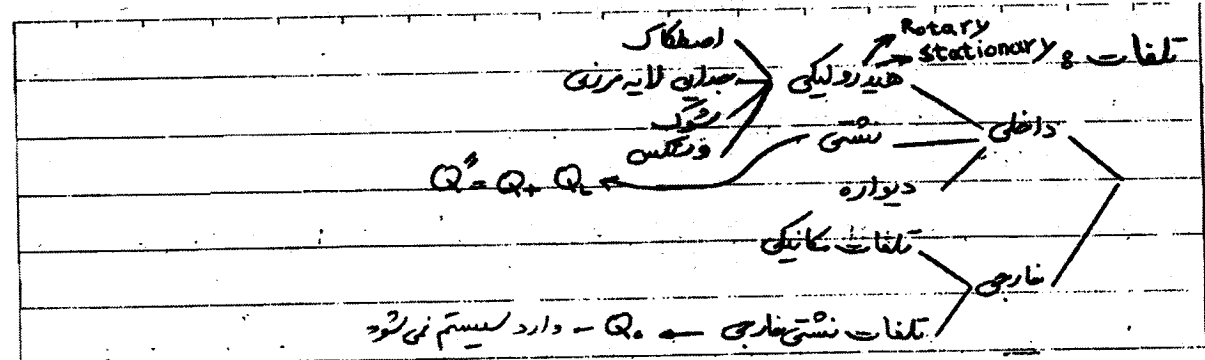 تلفات :
Rotary
Stationary
داخلی
هیدرولیکی
اصطکاک
جدایی لایه مرزی
شوک
ورتکس
نشتی
Q" = Q + Q_L
دیواره
خارجی
تلفات مکانیکی
تلفات نشتی خارجی ← Q₀ - وارد سیستم نمی‌شود